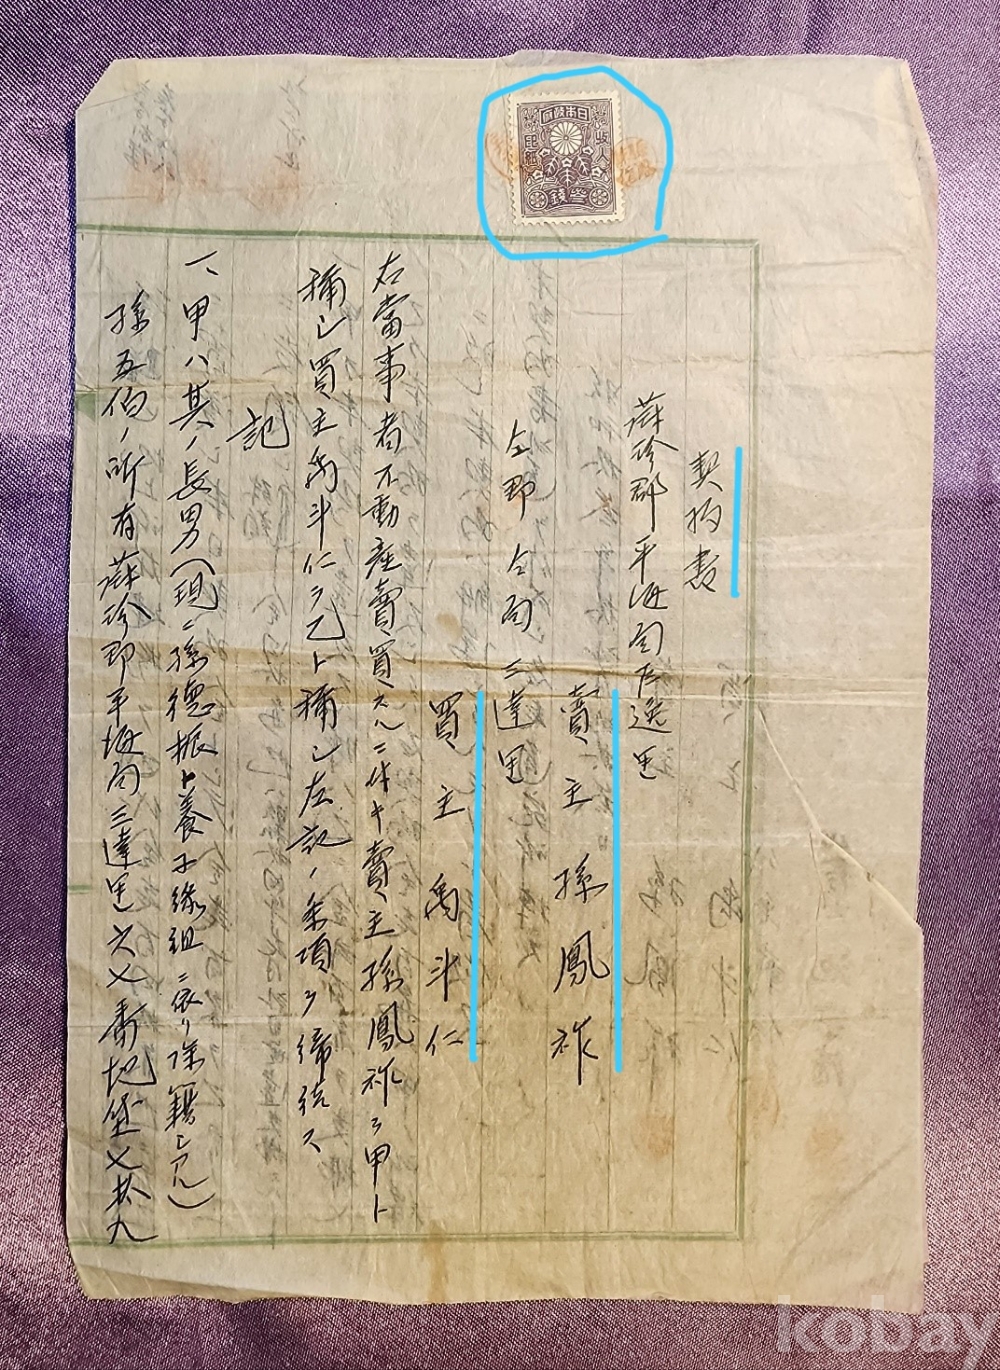 日本政府
収入
印紙
参銭
契約書
賣主 孫鳳祚
仝郡仝面三達里
買主 禹斗仁
右當事者不動産賣買スルニ付キ賣主孫鳳祚ヲ甲ト
稱シ買主禹斗仁ヲ乙ト稱シ左記ノ条項ヲ締結ス
記
一、甲ハ其ノ長男(現ニ孫德振ト養子緣組ニ依リ除籍シアル)
孫五伯ノ所有
三達里六七番地垈七拾九
kobay